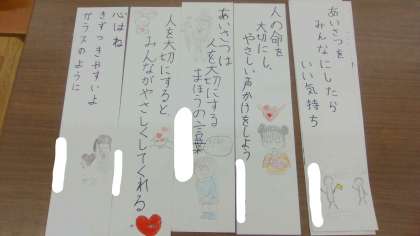 あいさつを
みんなにしたら
いい気持ち
人の命を
大切にし、
やさしい声かけをしよう
あいさつは
人を大切にする
まほうの言葉
人を大切にすると
みんながやさしくしてくれる
心はね
きずつきやすいよ
ガラスのように